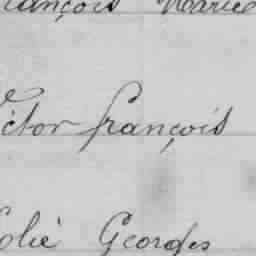 François Marie
ictor François
olié Georges